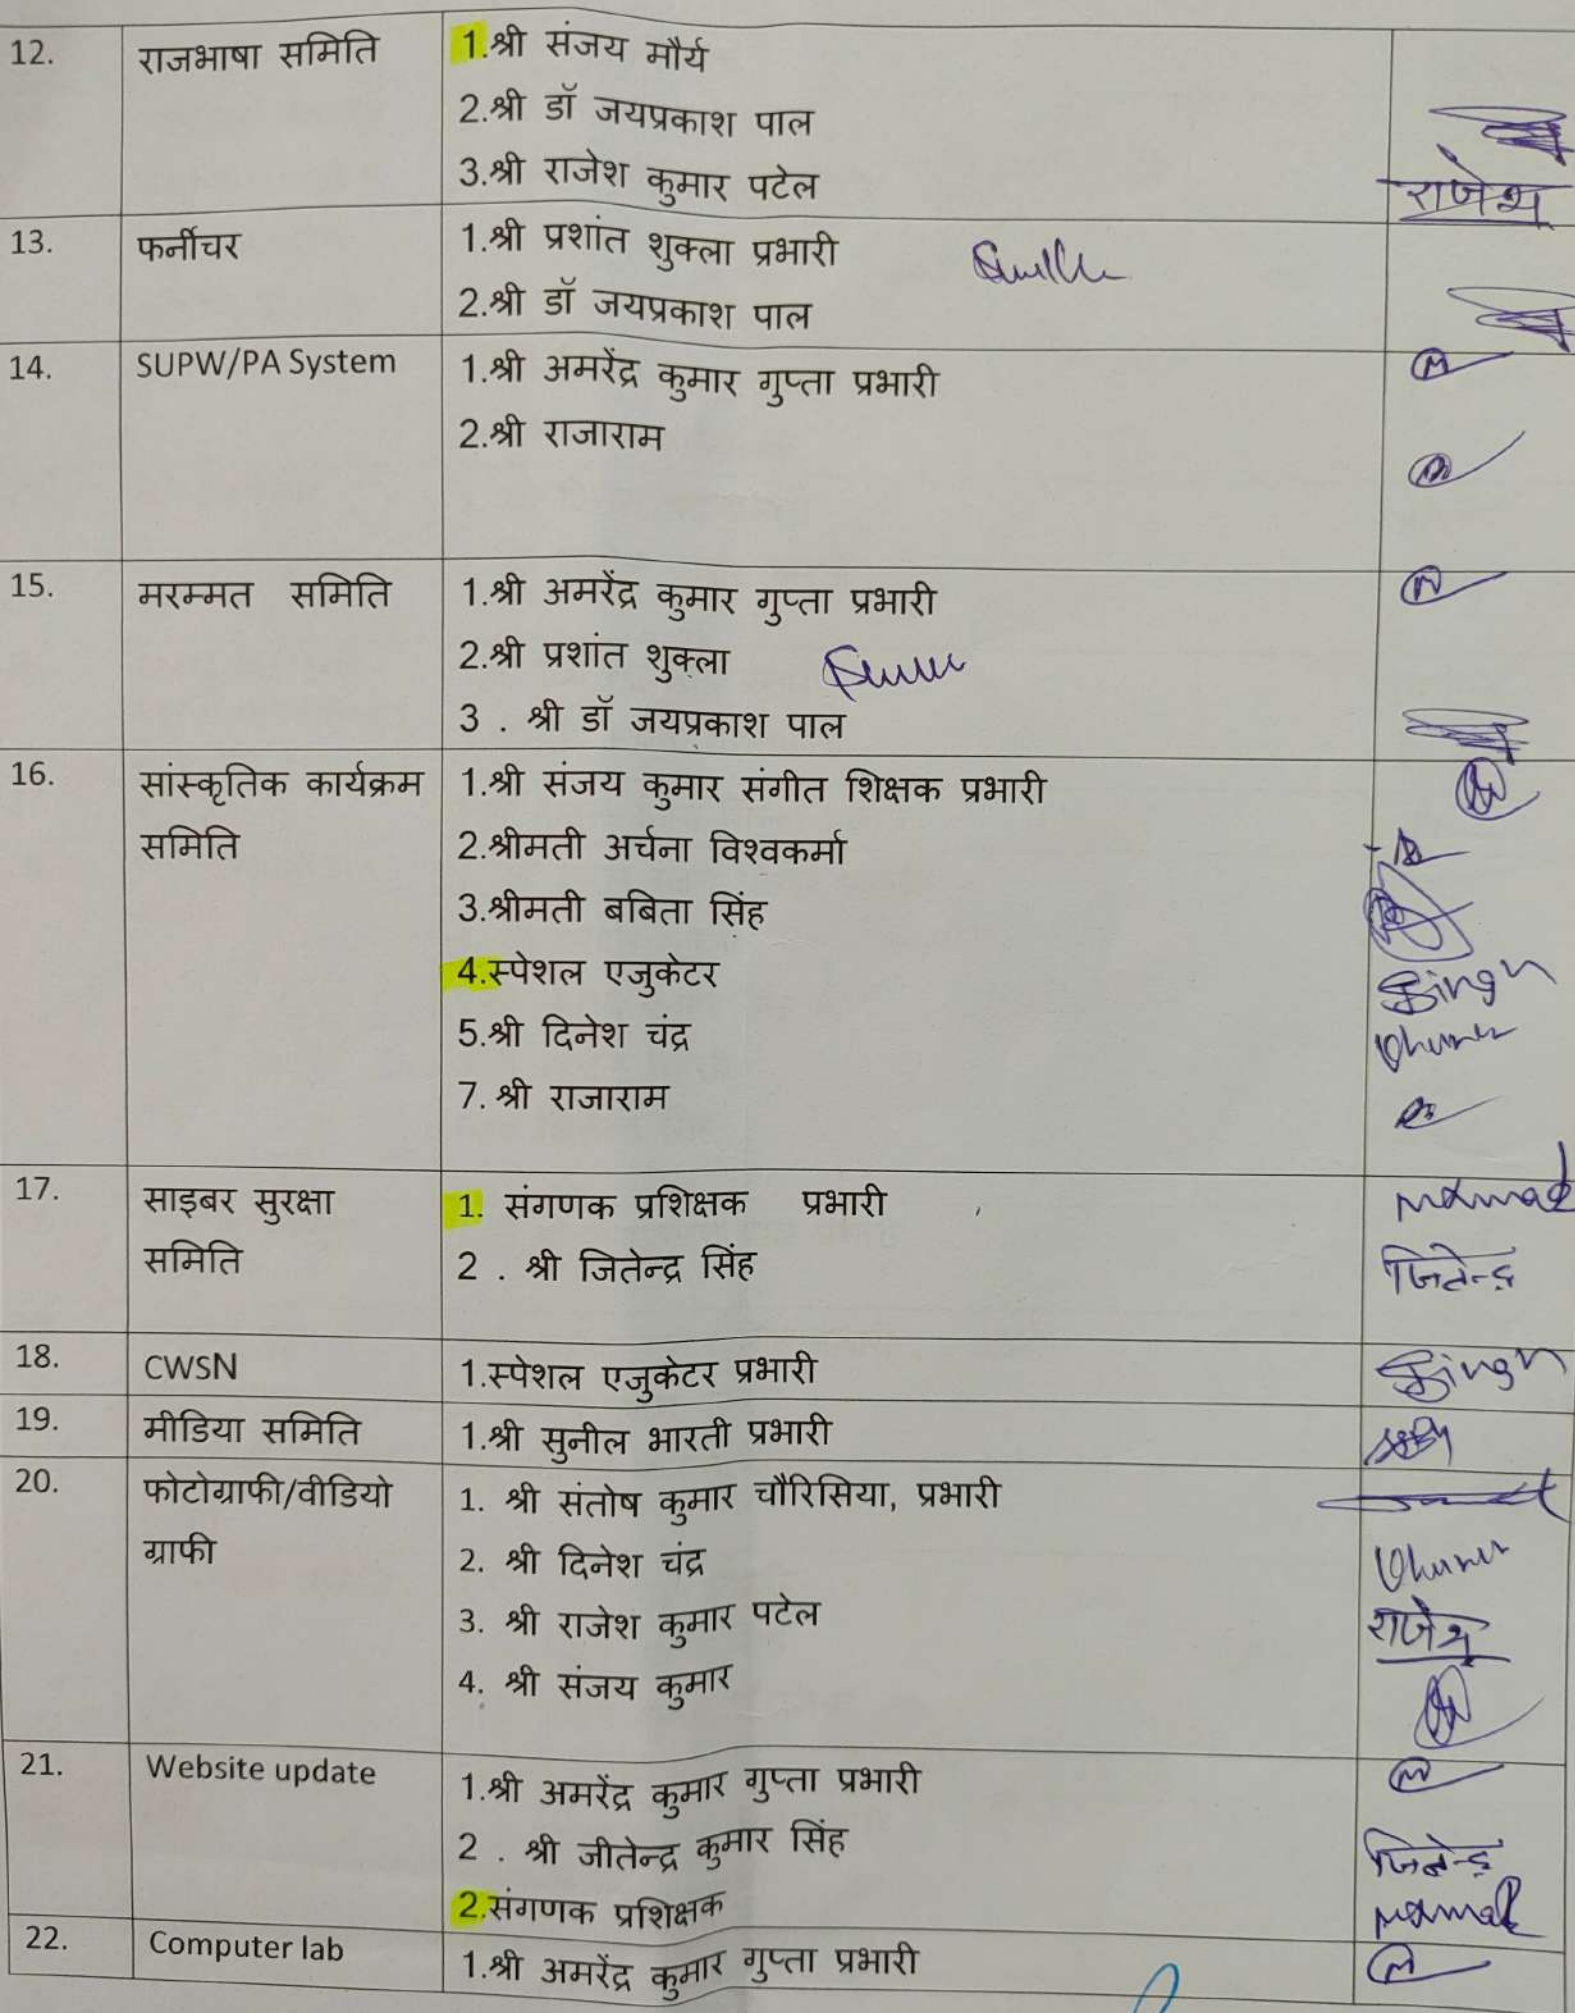 12. राजभाषा समिति 1.श्री संजय मौर्य
2.श्री डॉ जयप्रकाश पाल
3.श्री राजेश कुमार पटेल राजेश
13. फर्नीचर 1.श्री प्रशांत शुक्ला प्रभारी
2.श्री डॉ जयप्रकाश पाल
14. SUPW/PA System 1.श्री अमरेंद्र कुमार गुप्ता प्रभारी
2.श्री राजाराम
15. मरम्मत समिति 1.श्री अमरेंद्र कुमार गुप्ता प्रभारी
2.श्री प्रशांत शुक्ला
3 . श्री डॉ जयप्रकाश पाल
16. सांस्कृतिक कार्यक्रम 1.श्री संजय कुमार संगीत शिक्षक प्रभारी
समिति 2.श्रीमती अर्चना विश्वकर्मा
3.श्रीमती बबिता सिंह
4.स्पेशल एजुकेटर Singh
5.श्री दिनेश चंद्र
7. श्री राजाराम
17. साइबर सुरक्षा 1. संगणक प्रशिक्षक प्रभारी
समिति 2 . श्री जितेन्द्र सिंह जितेन्द्र
18. CWSN 1.स्पेशल एजुकेटर प्रभारी Singh
19. मीडिया समिति 1.श्री सुनील भारती प्रभारी
20. फोटोग्राफी/वीडियो 1. श्री संतोष कुमार चौरिसिया, प्रभारी
ग्राफी 2. श्री दिनेश चंद्र
3. श्री राजेश कुमार पटेल राजेश
4. श्री संजय कुमार
21. Website update 1.श्री अमरेंद्र कुमार गुप्ता प्रभारी
2 . श्री जीतेन्द्र कुमार सिंह जितेन्द्र
2.संगणक प्रशिक्षक
22. Computer lab 1.श्री अमरेंद्र कुमार गुप्ता प्रभारी